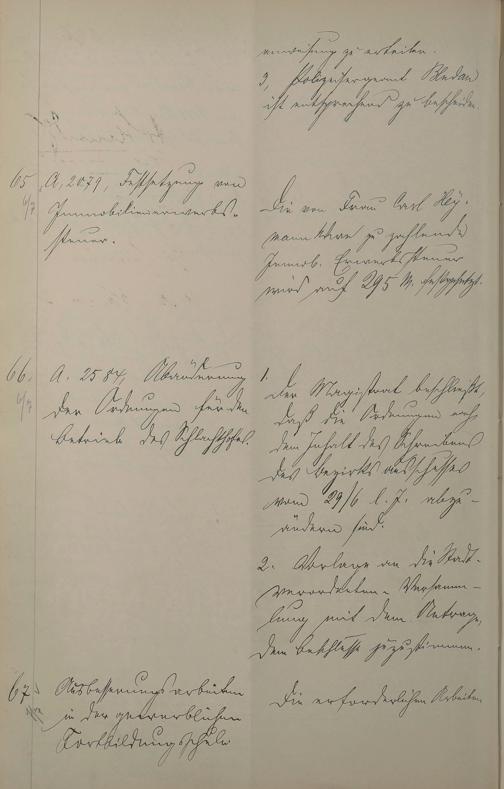 anweisung zu erteilen.
3, Polizeisergeant Bledau
ist entsprechend zu bescheiden.
65 A, 2079, Festsetzung von
6/7 Immobilienerwerbs-
steuer.
Die von Frau Carl Hey-
mann zu zahlende
Immob. Erwerbssteuer
wird auf 295 M. festgesetzt.
66. A. 2584, Abänderung
6/7 der Ordnungen für den
Betrieb des Schlachthofes.
1. Der Magistrat beschließt,
daß die Ordnungen nach
dem Inhalt des Schreibens
des Bezirksausschusses
vom 29/6 l. J. abzu-
ändern sind.
2. Vorlage an die Stadt-
verordneten-Versamm-
lung mit dem Antrage,
dem Beschlusse zuzustimmen.
67 Ausbesserungsarbeiten
in der gewerblichen
Fortbildungsschule
Die erforderlichen Arbeiten